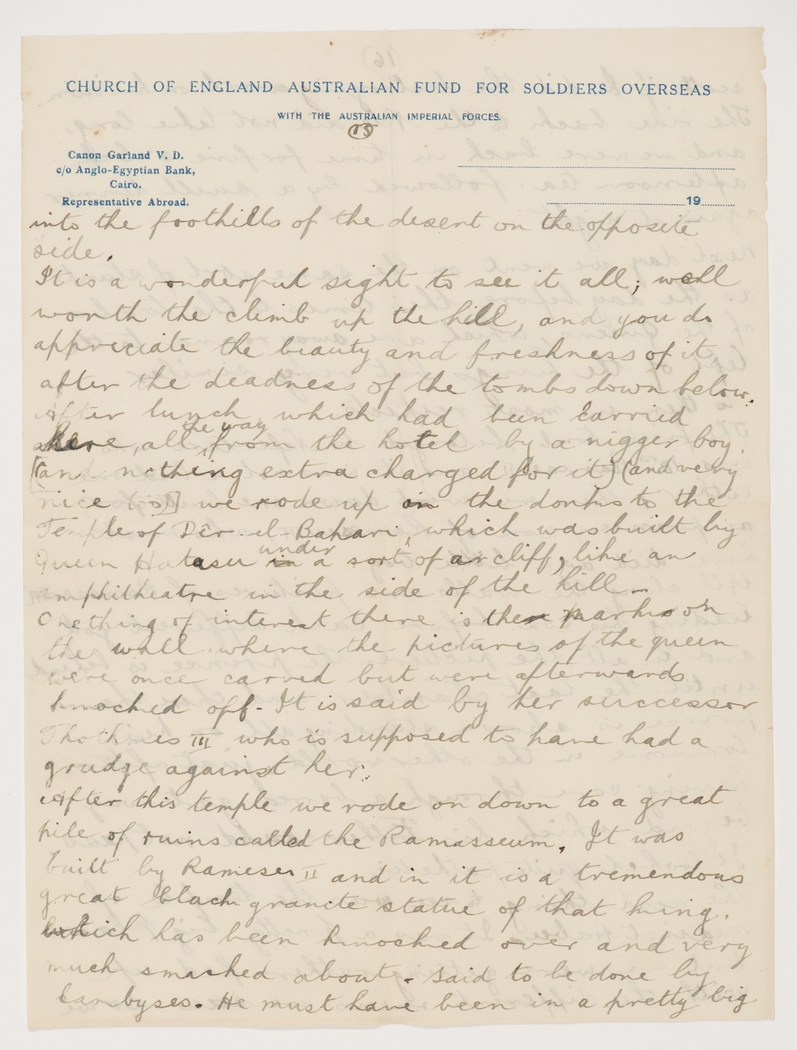 CHURCH OF ENGLAND AUSTRALIAN FUND FOR SOLDIERS OVERSEAS
WITH THE AUSTRALIAN IMPERIAL FORCES.
15
Canon Garland V. D.
c/o Anglo-Egyptian Bank,
Cairo.
Representative Abroad.
19
into the foothills of the desert on the opposite
side.
It is a wonderful sight to see it all; well
worth the climb up the hill, and you do
appreciate the beauty and freshness of it,
after the deadness of the tombs down below.
After lunch, which had been carried
the way
here, all from the hotel by a nigger boy.
(and nothing extra charged for it) (and very
nice too) we rode up on the donks to the
Temple of Dêr-el-Bahari, which was built by
under
Queen Hatasu in a sort of a cliff, like an
amphitheatre in the side of the hill -
One thing of interest there is the marks on
the wall where the pictures of the queen
were once carved but were afterwards
knocked off. It is said by her successor
Thothmes III who is supposed to have had a
grudge against her.
After this temple we rode on down to a great
pile of ruins called the Ramasseum. It was
built by Rameses II and in it is a tremendous
great black granite statue of that king.
which has been knocked over and very
much smashed about. said to be done by
Cambyses. He must have been in a pretty big